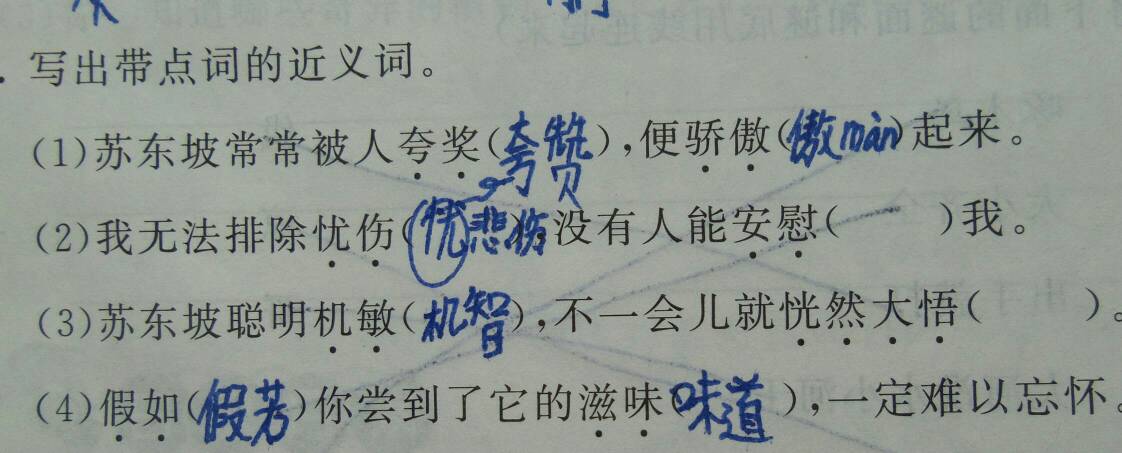 写出带点词的近义词。
(1)苏东坡常常被人夸奖(夸赞),便骄傲(傲màn)起来。
(2)我无法排除忧伤(忧悲伤),没有人能安慰( )我。
(3)苏东坡聪明机敏(机智),不一会儿就恍然大悟( )。
(4)假如(假若)你尝到了它的滋味(味道),一定难以忘怀。